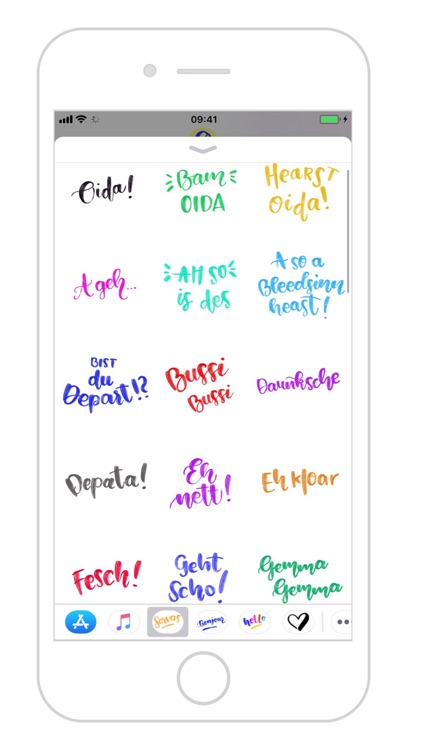 09:41
Oida!
Bam
OIDA
HEARST
Oida!
A geh...
AH SO
is des
A so a
Bleedsinn
heast!
BIST
du
Depart!?
Bussi
Bussi
Daunksche
Depata!
Eh
nett!
Eh kloar
Fesch!
Geht
Scho!
Gemma
Gemma
Servas
Bonjour
hello